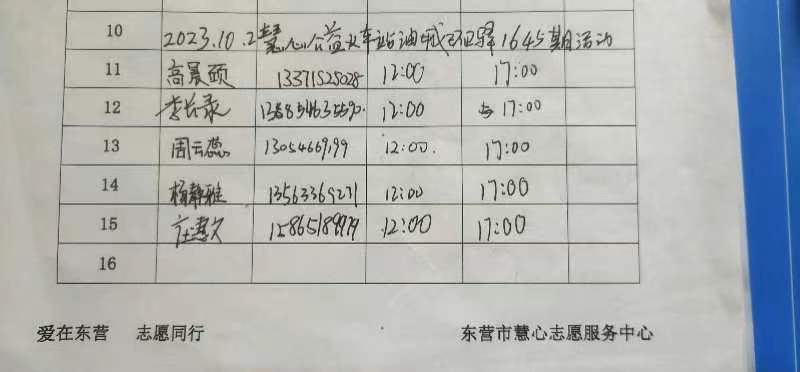 10 2023.10.2慧心公益火车站油城驿1645期活动
11 高晨颐 13371525028 12:00 17:00
12 李长录 12:00 17:00
13 周云蕊 1305466 12:00. 17:00
14 杨静雅 13563369271 12:00 17:00
15 庄慧文 12:00 17:00
16
爱在东营 志愿同行 东营市慧心志愿服务中心